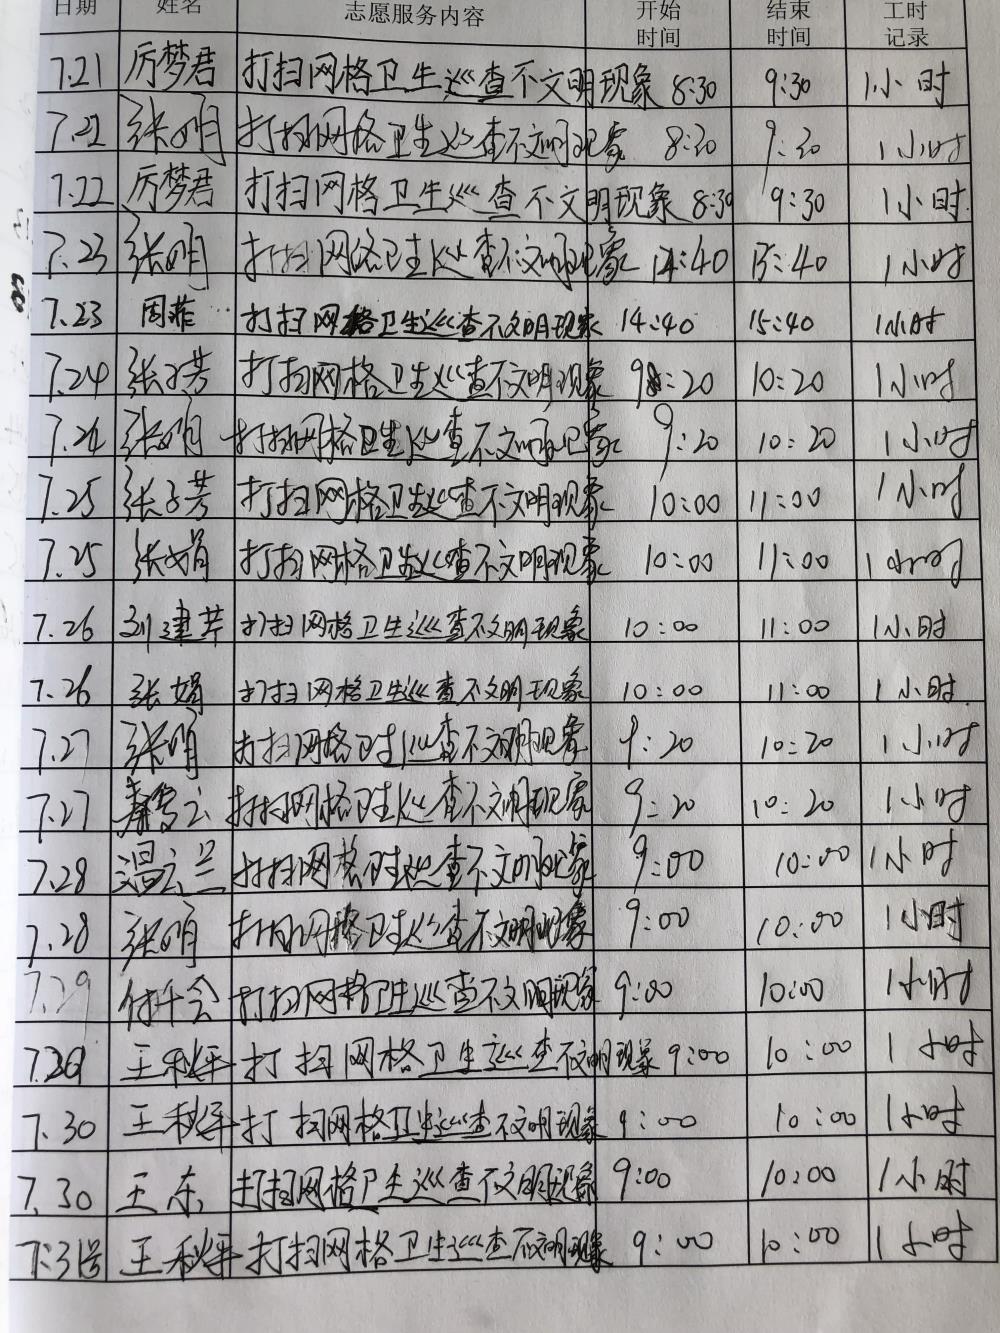 日期 姓名 志愿服务内容 开始时间 结束时间 工时记录
7.21 厉梦君 打扫网格卫生巡查不文明现象 8:30 9:30 1小时
7.22 张明 打扫网格卫生巡查不文明现象 8:30 9:30 1小时
7.22 厉梦君 打扫网格卫生巡查不文明现象 8:30 9:30 1小时
7.23 张明 打扫网络卫生巡查不文明现象 14:40 15:40 1小时
7.23 周菲 打扫网格卫生巡查不文明现象 14:40 15:40 1小时
7.24 张子芳 打扫网格卫生巡查不文明现象 9:20 10:20 1小时
7.24 张明 打扫网格卫生巡查不文明现象 9:20 10:20 1小时
7.25 张子芳 打扫网格卫生巡查不文明现象 10:00 11:00 1小时
7.25 张娟 打扫网格卫生巡查不文明现象 10:00 11:00 1小时
7.26 刘建芹 打扫网格卫生巡查不文明现象 10:00 11:00 1小时
7.26 张娟 打扫网格卫生巡查不文明现象 10:00 11:00 1小时
7.27 张明 打扫网格卫生巡查不文明现象 9:20 10:20 1小时
7.27 秦雪云 打扫网格卫生巡查不文明现象 9:20 10:20 1小时
7.28 温云兰 打扫网格卫生巡查不文明现象 9:00 10:00 1小时
7.28 张明 打扫网格卫生巡查不文明现象 9:00 10:00 1小时
7.29 付千会 打扫网格卫生巡查不文明现象 9:00 10:00 1小时
7.29 王秋平 打扫网格卫生巡查不文明现象 9:00 10:00 1小时
7.30 王秋平 打扫网格卫生巡查不文明现象 9:00 10:00 1小时
7.30 王东 打扫网格卫生巡查不文明现象 9:00 10:00 1小时
7:31号 王秋平 打扫网格卫生巡查不文明现象 9:00 10:00 1小时